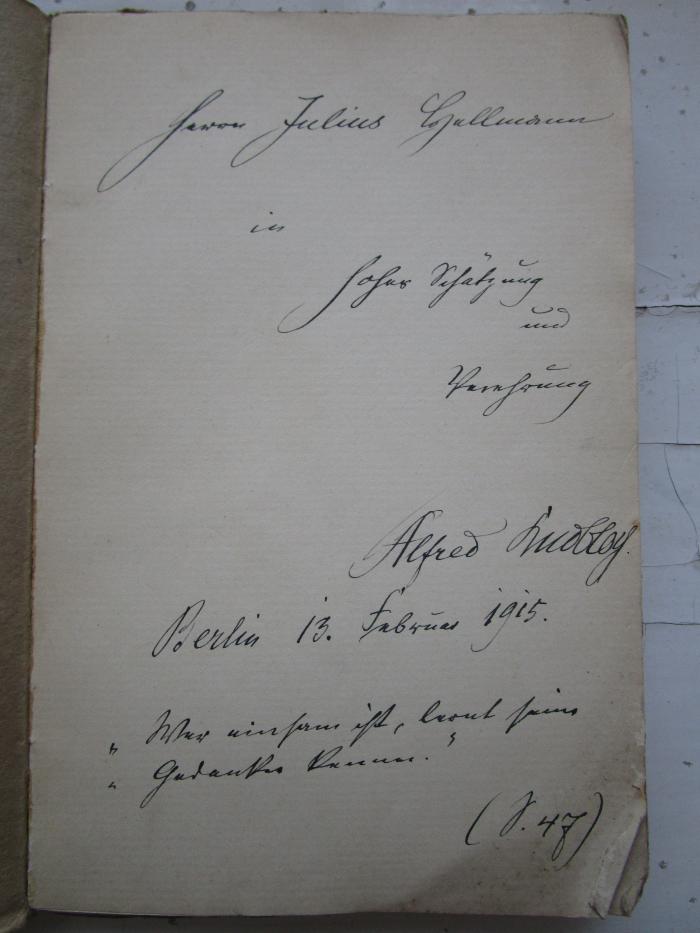 Herrn Julius Hellmann
in
hoher Schätzung
und
Verehrung
Alfred Knobloch.
Berlin 13. Februar 1915.
„ Wer einsam ist, lernt seine
„ Gedanken kennen.“
(S. 47)